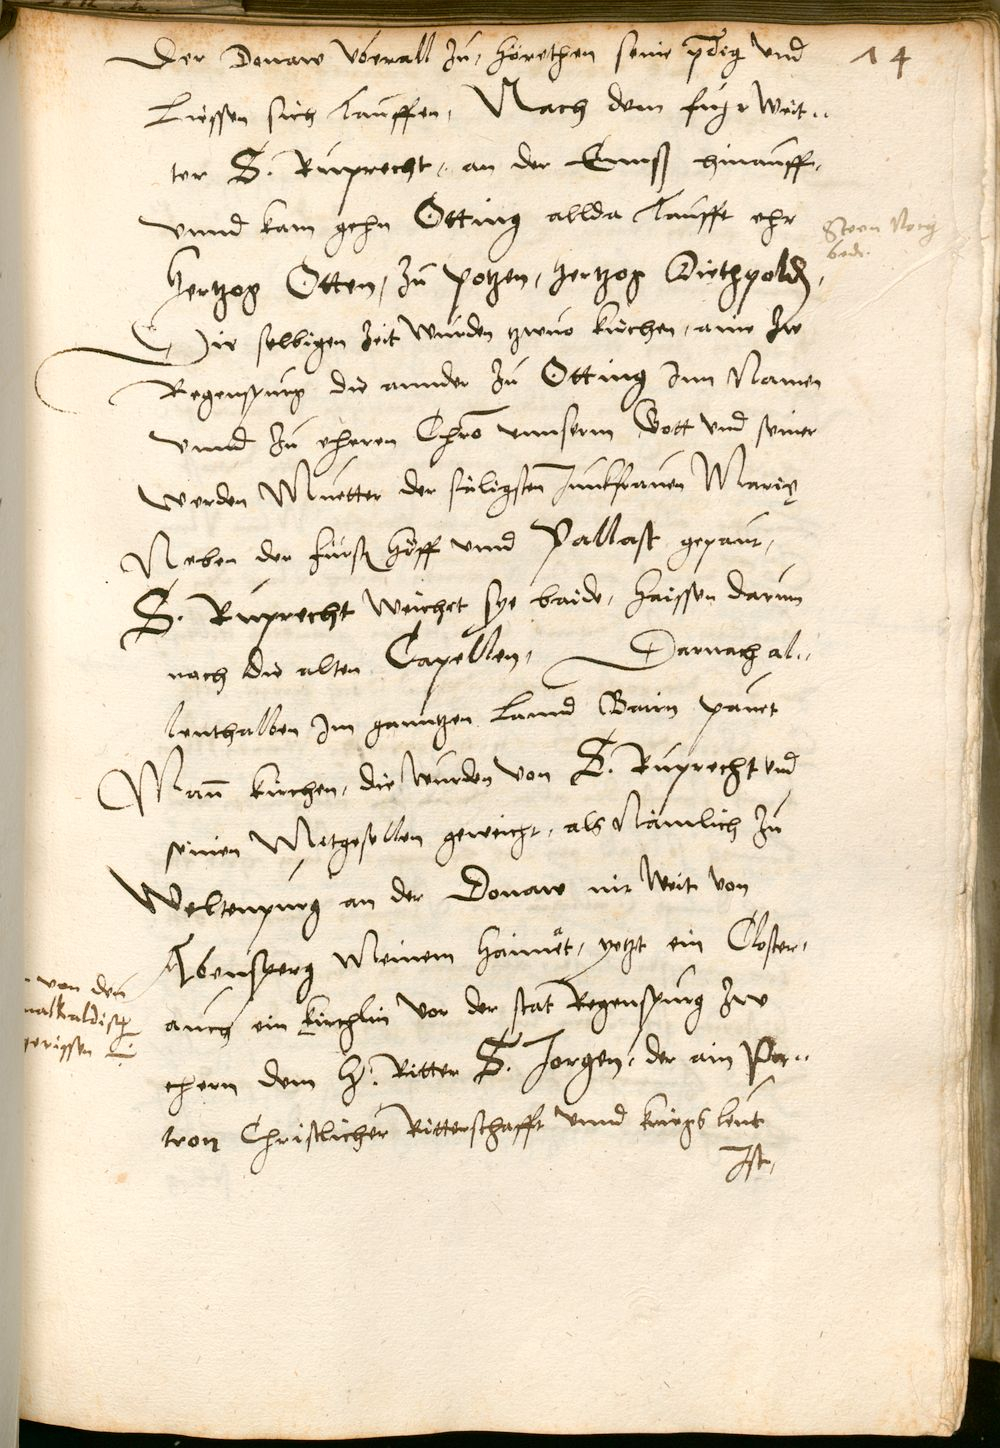 14
Der Donaw vberall zu, hörethen seine pdig vnd
Liessen sich tauffen, Nach dem fuhr Weit..
ter S. Ruprecht, an der Ennß hinauff,
vnnd kam gehn Otting allda taufft ehr
Hertzog Otten, zu Potzen, Hertzog Diethpold,
Die selbigen Zeit wurden zwuo kirchen, aine zw
Regenspurg die annder zu Otting Inn Namen
vnnd zu eheren Chro vnnserm Gott vnd seiner
werden Muetter der säligsten Junkfrauen Marie
Neben der fürst Höff vnnd Pallast gepaut,
S. Ruprecht Weichet sye baide, Haissen darum
noch die alten Capellen, Darnach al..
lenthalben Im ganntzen Lannd Bairn pauet
Man kirchen, die wurden von S. Ruprecht vnd
seinen Mitgesellen geweicht, als Nämlich zu
Weltenpurg an der Donaw nit Weit von
Abensperg Meinem Haimet, yetzt ein Closter,
auch ein kirchlin vor der stat Regenspurg zw
ehern dem H. Ritter S. Jorgen, der ain Pa..
tron Christlicher Ritterschafft vnnd kriegs leut
Ist,
von den
malkaldisch
gerissen